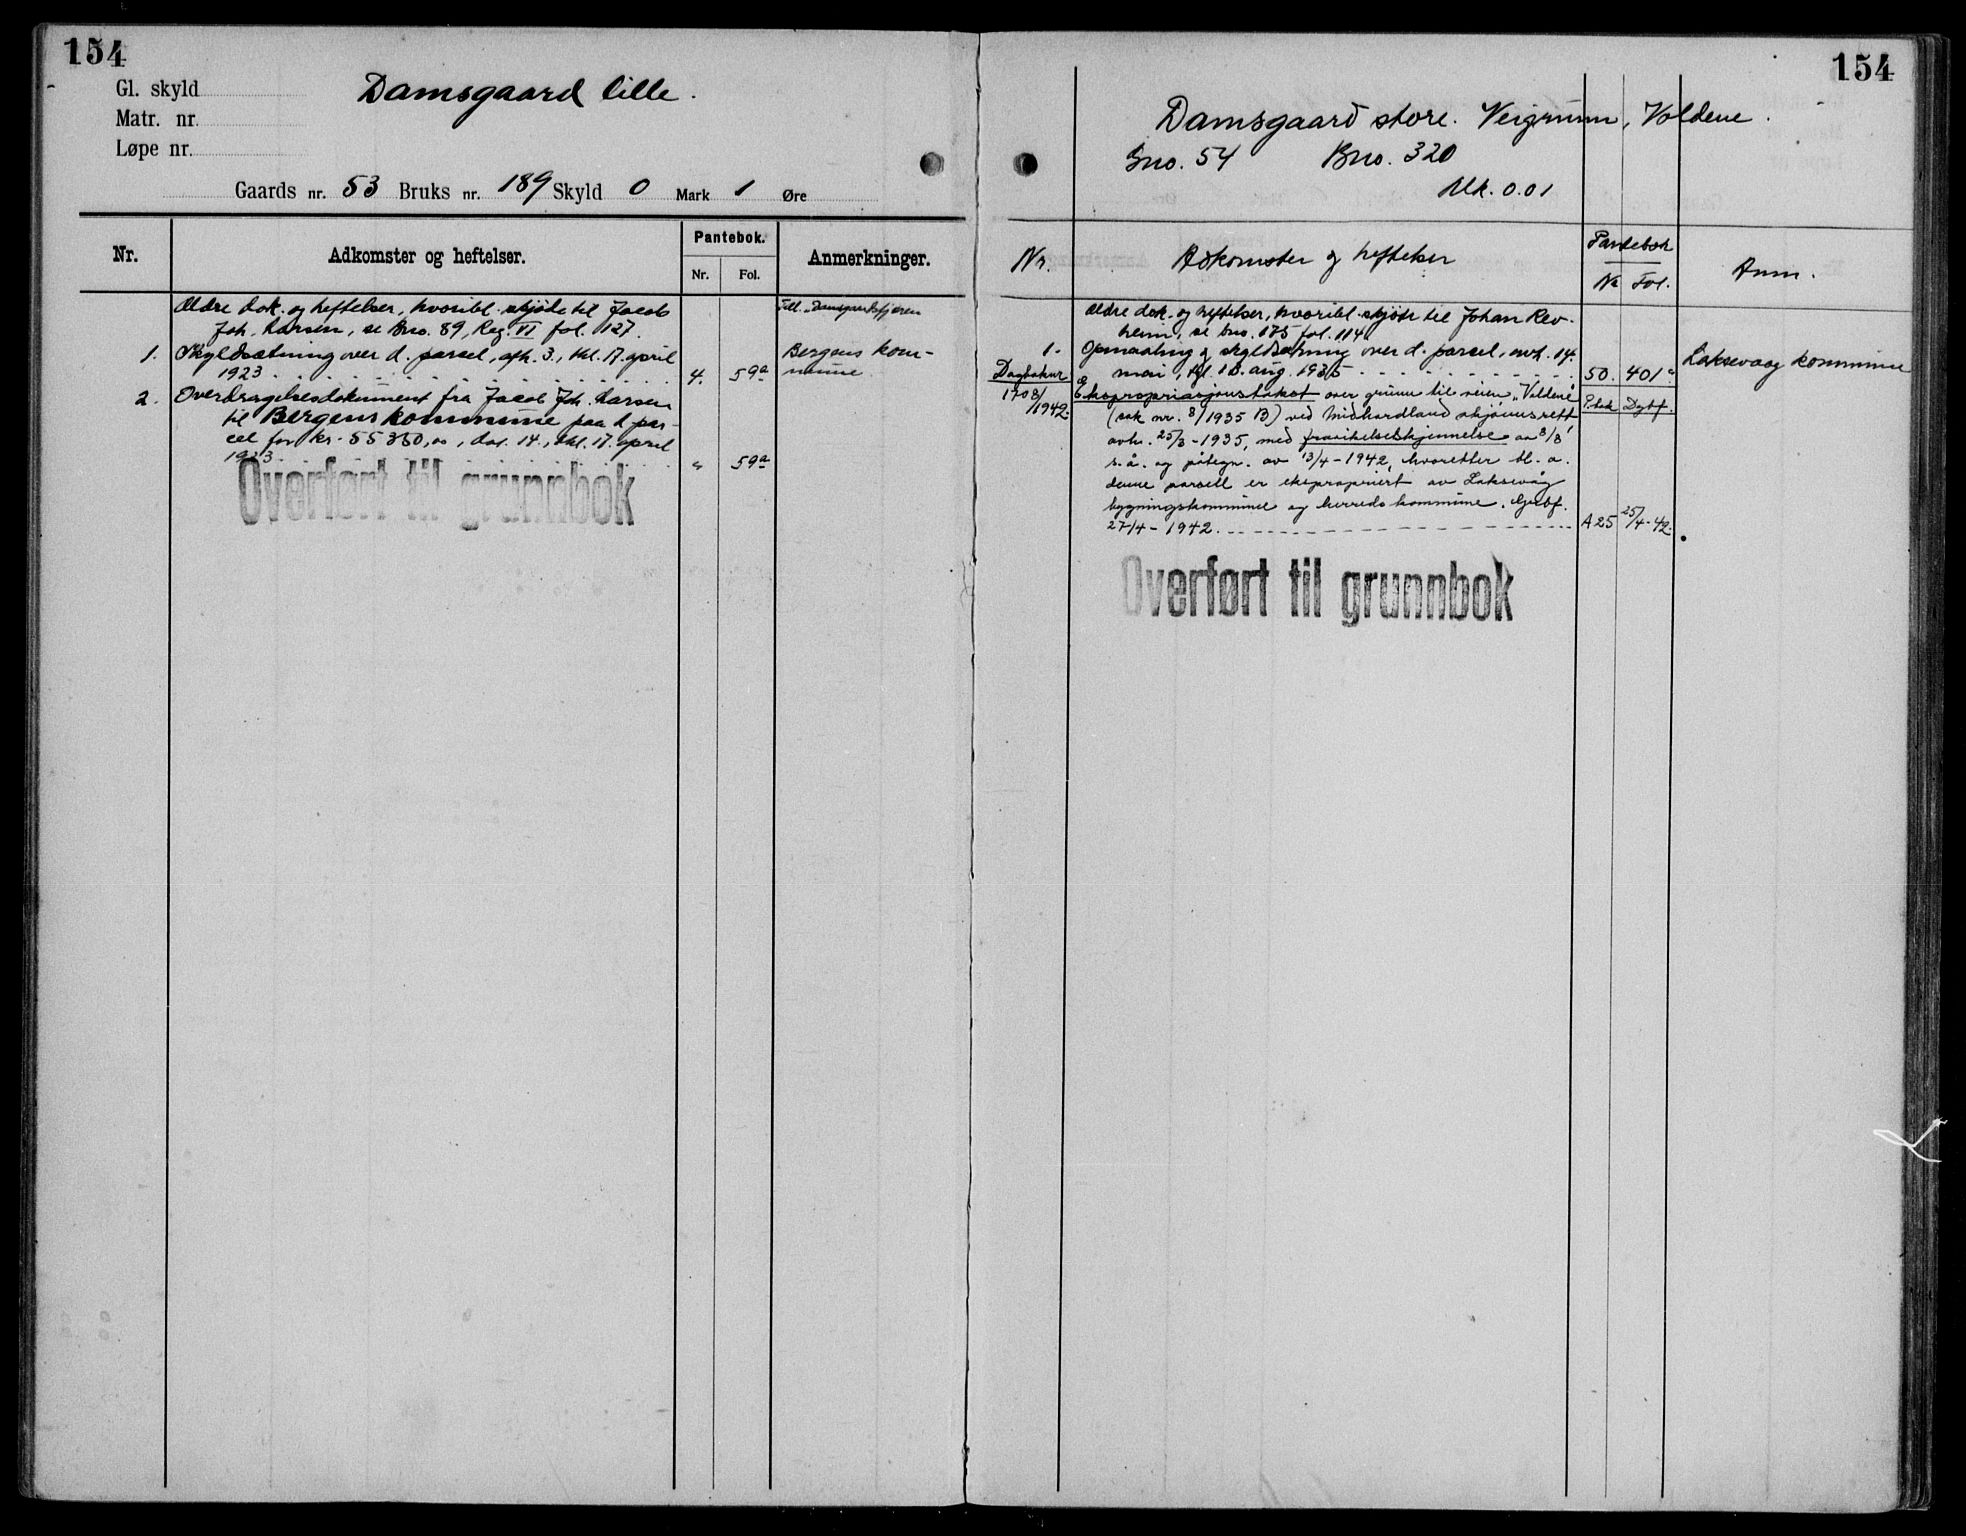 154
Gl. skyld
Matr. nr.
Løpe nr.
Damsgaard lille.
Gaards nr. 53 Bruks nr. 189 Skyld 0 Mark 1 Øre
Nr.
Adkomster og heftelser.
Pantebok.
Nr. Fol.
Anmerkninger.
Ældre dok. og heftelser, hvoribl. skjøde til Jacob
Joh. Larsen, se Bno. 89, Reg. VI fol. 127.
1. Skyldsætning over d. parsel, afh. 3., thl. 17. april
1923 4. 59a
2. Overdragelsesdokument fra Jacob Joh. Larsen
til Bergens kommune paa d. par-
cel for kr. 55350,00, dat. 14., thl. 17. april
1923 " 59a
Bergens kom-
mune.
Overført til grunnbok
154
Damsgaard store. Veigrunn, Voldene.
Gno. 54 Bno. 320
Mk. 0.01
Nr.
Adkomster og heftelser
Pantebok
Nr Fol.
Anm.
Ældre dok. og heftelser, hvoribl. skjøte til Johan Rev-
heim, se bno. 175 fol. 114a
1. Opmaaling og skyldsætning over d. parsel, avh. 14.
mai, tgl. 10. aug. 1935 50. 401a
Laksevaag kommune
Dagboknr
1708/1942.
P.bok Dagbf.
Ekspropriasjonstakst over grunn til veien "Voldene"
(sak nr. 8/1935 B) ved Midhordland skjønnsrett
avh. 25/3-1935, med fravikelseskjennelse av 8/8
s.å. og påtegn. av 13/4-1942, hvoretter bl. a.
denne parsell er ekspropriert av Laksevåg
bygningskommune og herredskommune. Gjebf.
27/4-1942. A25 25/4-42.
Overført til grunnbok